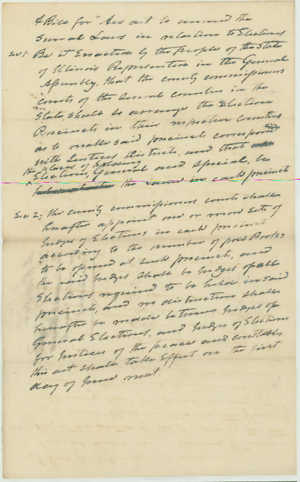 A Bill for "An act to amend the
several Laws in relation to Elections
Sec 1 Be it Enacted by the people of the State
of Illinois Represented in the General
Assembly, that the county commissioners
courts of the several counties in the
State, shall so arrange the Election
Precincts in their respective counties
as to make said precincts correspond
with Justices Districts, and that
the places of holding
Elections, General and Special, be
the same in each precinct
Sec 2, The county commissioners courts shall
hereafter appoint one or more sets of
Judges of Elections in each precinct
according to the number of poll Books
to be opened at such precinct, and
the said Judges shall be Judges of all
Elections required to be held in said
precinct, and no distinction shall
hereafter be made between Judges of
General Elections, and Judges of Elections
for Justices of the peace and constables
this act shall take Effect on the first
day of June next